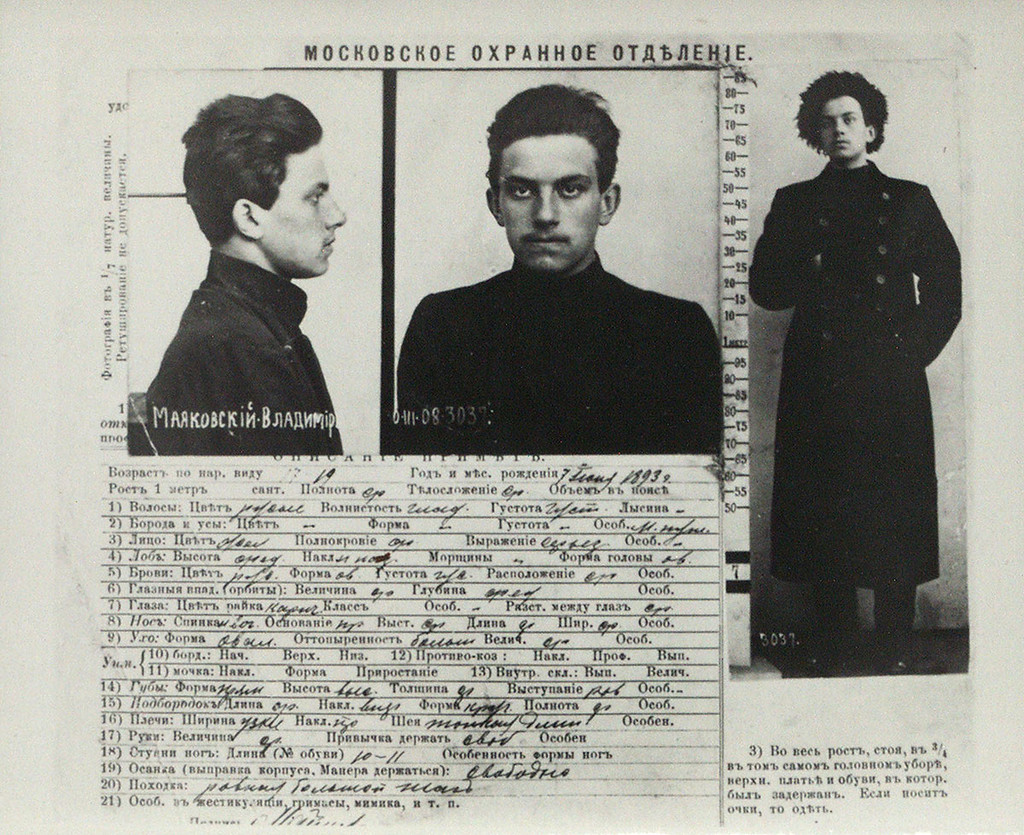 МОСКОВСКОЕ ОХРАННОЕ ОТДѢЛЕНІЕ.
удо
Фотографія въ 1/7 натур. величины.
Ретушированіе не допускается.
МАЯКОВСКІЙ·ВЛАДИМІР
0·III·08·3037·
85
80
75
70
65
60
55
50
45
40
35
30
25
20
15
10
1 метр
95
90
85
80
75
70
65
60
55
50
7
3037.
1
отк
проф
ОПИСАНІЕ ПРИМѢТЪ.
Возрастъ по нар. виду 19 Годъ и мѣс. рожденія 7 1893 г
Ростъ 1 метръ сант. Полнота ср Тѣлосложеніе ср. Объемъ въ поясѣ
1) Волосы: Цвѣтъ Волнистость глад. Густота густ. Лысина -
2) Борода и усы: Цвѣтъ - Форма - Густота - Особ.
3) Лицо: Цвѣтъ Полнокровіе ср Выраженіе Особ. -
4) Лобъ: Высота сред Накл. Морщины - Форма головы ов.
5) Брови: Цвѣтъ Форма ов. Густота Расположеніе ср Особ.
6) Глазныя впад. (орбиты): Величина ср Глубина сред Особ.
7) Глаза: Цвѣтъ райка карій Классъ Особ. - Разст. между глазъ ср
8) Носъ: Спинка Основаніе пр Выст. ср Длина Шир. ср. Особ.
9) Ухо: Форма овал. Оттопыренность больш Велич. ср Особ.
10) борд.: Нач. Верх. Низ. 12) Противо-коз: Накл. Проф. Вып.
11) мочка: Накл. Форма Приростаніе 13) Внутр. скл.: Вып. Велич.
14) Губы: Форма Высота Толщина Выступаніе Особ. -
15) Подбородокъ Длина ср. Накл. Форма Полнота Особ.
16) Плечи: Ширина узкіе Накл. Шея Особен.
17) Руки: Величина ср Привычка держать своб Особен
18) Ступни ногъ: Длина (№ обуви) 10-11 Особенность формы ногъ
19) Осанка (выправка корпуса. Манера держаться): свободно
20) Походка:
21) Особ. въ жестикуляціи, гримасы, мимика, и т. п.
3) Во весь ростъ, стоя, въ 3/4
въ томъ самомъ головномъ уборѣ,
верхн. платьѣ и обуви, въ котор.
былъ задержанъ. Если носитъ
очки, то одѣть.